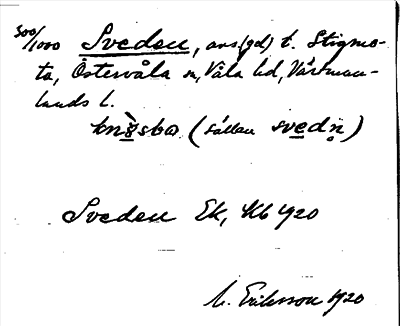 300/1000 Sveden, avs(gd) t. Stigmo-
ta, Östervåla sn, Våla hd, Västman-
lands l.
(sällan svedn)
Sveden Ek, Kb 1920
M. Eriksson 1920